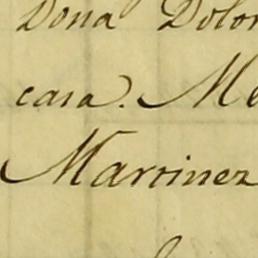 Dona Dolor
casa. Me
Martinez